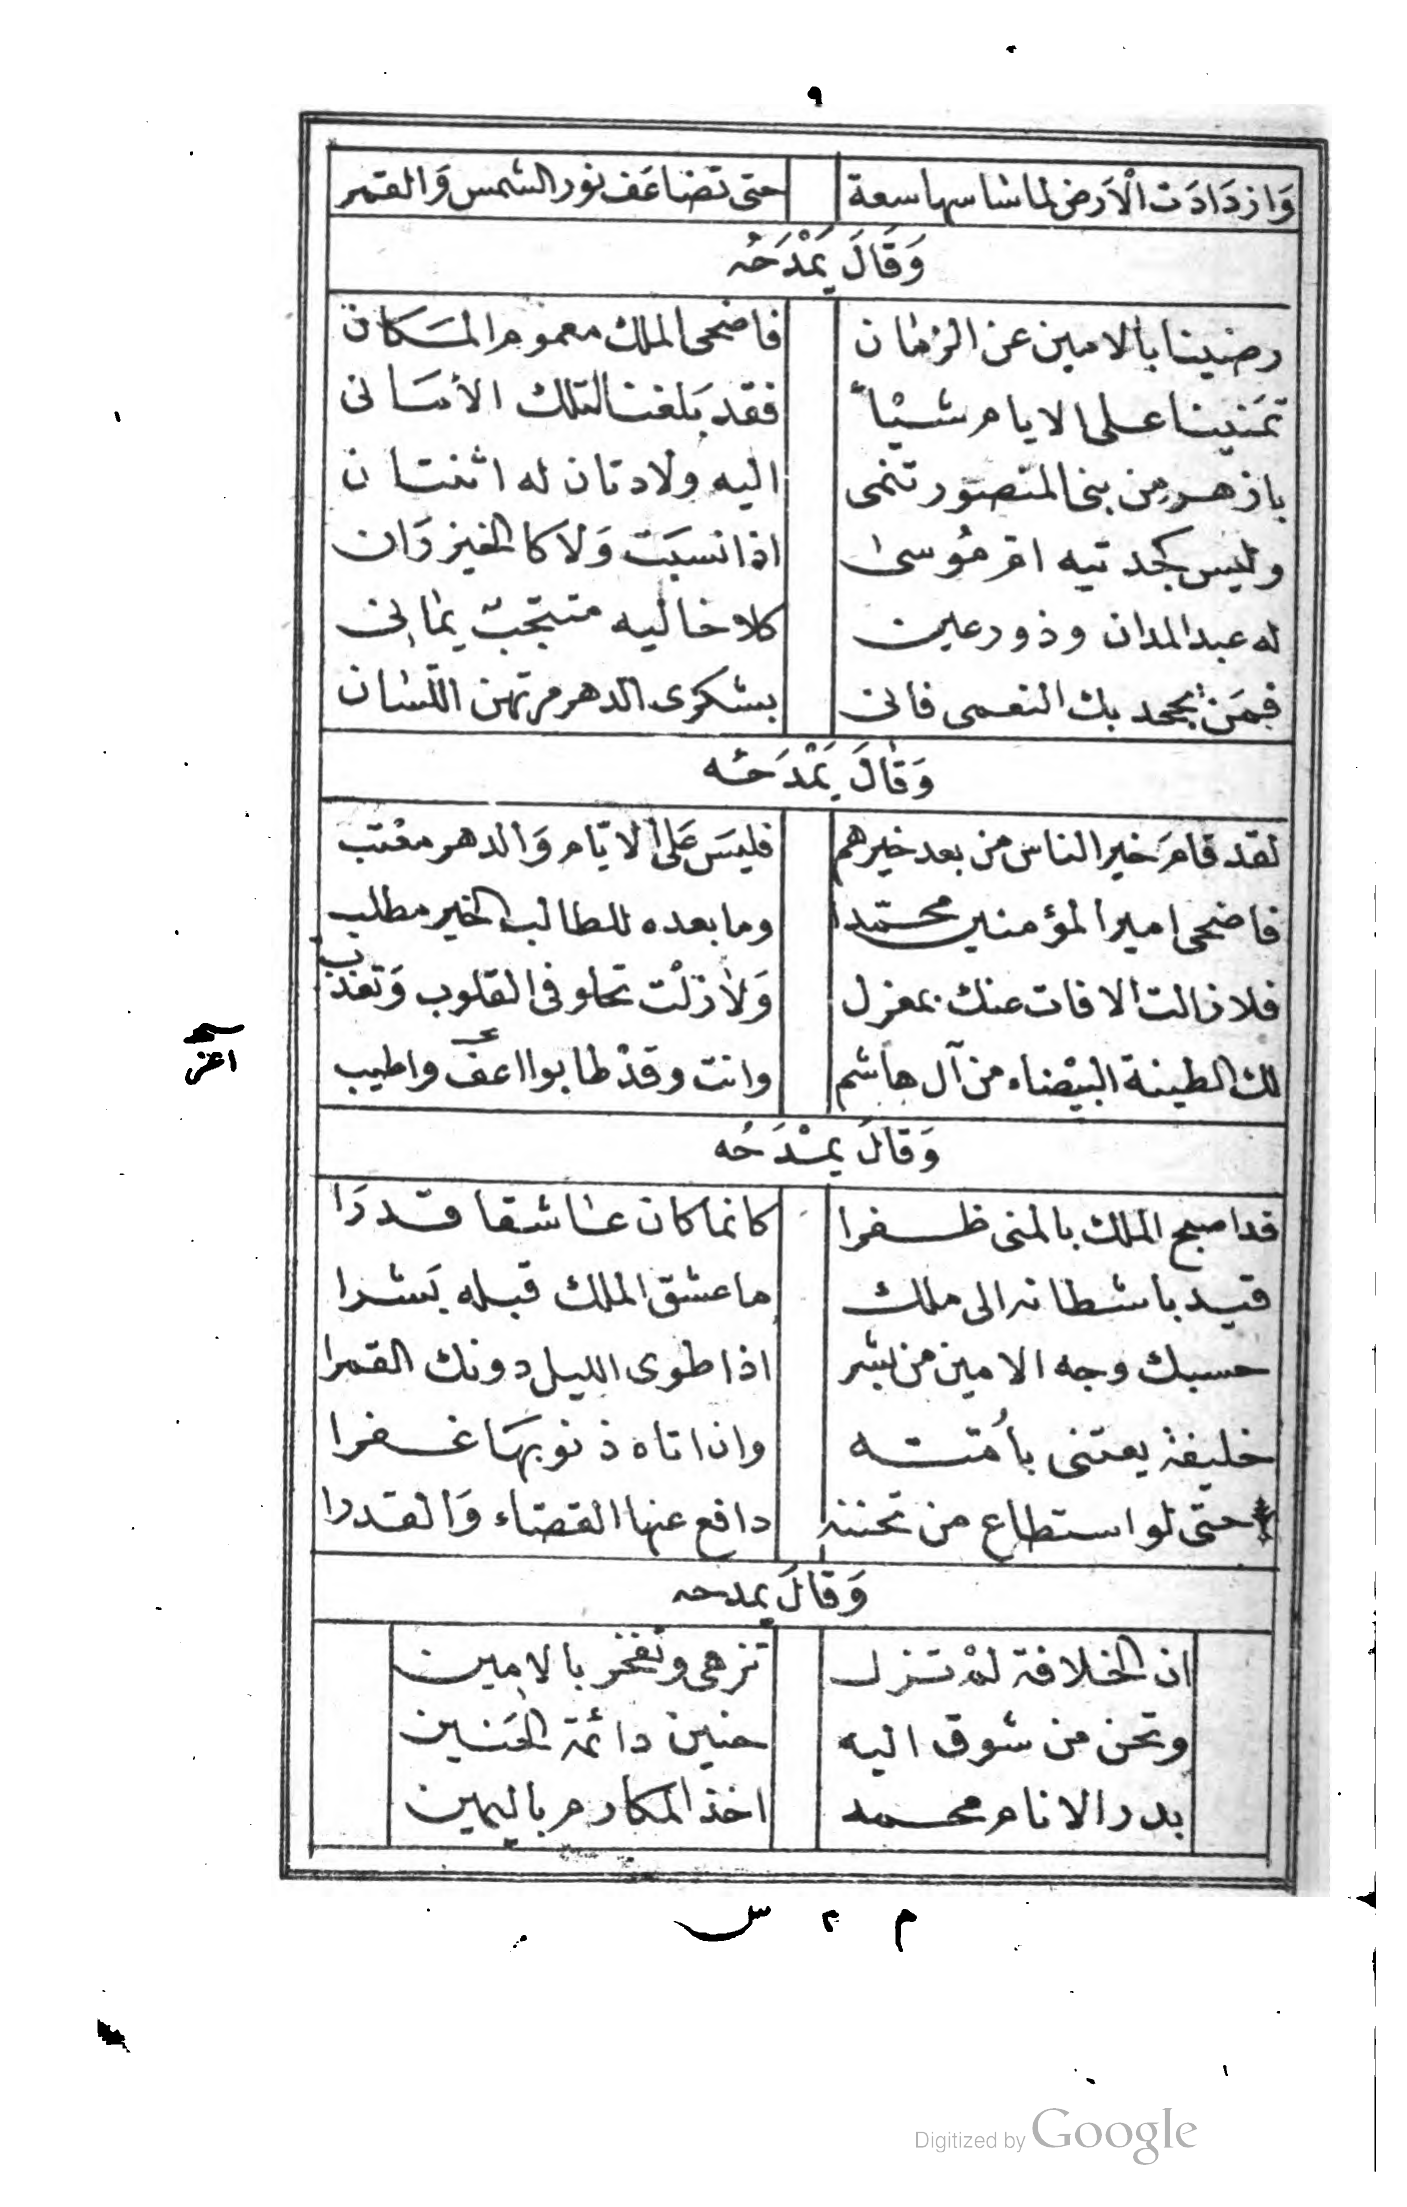 ٩
وَازدَادَت الْاَرض لما ساسها سعة حتى تضاعَف نور الشمس وَالقمر
وَقَالَ يَمْدَحُه
رضينا بالامين عن الزمان فاضحى الملك معمور المسَكان
تمَنينا على الايام شيْأً فقد بَلغنا لتلك الأمَانى
بازهر من بنى المنصور تنمى اليه ولادتان له اثنتان
وليس كجدتيه ام مُوسى اذا نسبَت وَلا كالخيزرَان
له عبد المدان وذو رعين كلا خاليه منتجبٌ يمانى
فمَن يجحد بك النعمى فانى بشكرى الدهر مرتهن اللسَان
وَقالَ يَمْدَحُه
لقد قامَ خير الناس من بعد خيرهم فليسَ عَلى الايّام وَالدهر معْتب
فاضحى امير المؤمنين محمّدا وما بعده للطالب الخير مطلب
فلا زالت الافات عنك بمعزل وَلا زلْت تحلو فى القلوب وَتعذب
لك الطينة البيْضاء من آل هاشم وانت وقدْ طابوا اعف واطيب
اعز
وَقالَ يمْدَحُه
قد اصبح الملك بالمنى ظفرا كانما كان عاشقا قدرَا
قيد باشطانه الى ملك ما عشق الملك قبله بَشرا
حسبك وجه الامين من بشر اذا طوى الليل دونك القمرا
خليفة يعتنى بأمته وان اتاه ذنوبهَا غفرا
حتى لو استطاع من تحننه دافع عنها القضاء وَالقدرا
وَقالَ يمدحه
ان الخلافة لمْ تزل تزهى وتفخر بالامين
وتحن من شوق اليه حنين دائمة الحَنين
بدر الانام محمد اخذ المكارم باليمين
م ٢ س
Digitized by Google